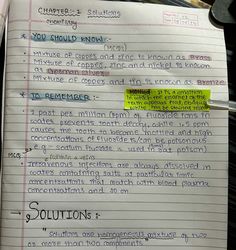 CHAPTER-1 Solutions
chemistry
* YOU SHOULD KNOW :-
(MCQs)
• Mixture of copper and zinc is known as Brass
• Mixture of copper, zinc and nickel is known
as German silver
• Mixture of copper and tin is known as Bronze
* TO REMEMBER :-
• 1 part per million (ppm) of fluoride ions in
water prevents tooth decay, while 1.5 ppm
causes the tooth to become mottled and high
concentrations of fluoride is/can be poisonous
e.g - sodium fluoride is used in rat poison)
MCQ →
• Intravenous injections are always dissolved in
water containing salts at particular ionic
concentrations that match with blood plasma
concentrations and so on
→ SOLUTIONS :-
Solutions are homogeneous mixture of two
or more than two components